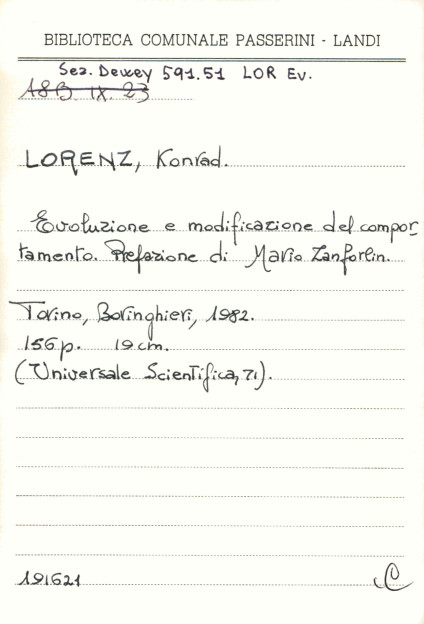 BIBLIOTECA COMUNALE PASSERINI - LANDI
Sez. Dewey 591.51 LOR Ev.
A8B. IX. 23
LORENZ, Konrad.
Evoluzione e modificazione del compor-
tamento. Prefazione di Mario Zanforlin.
Torino, Boringhieri, 1982.
156 p. 19 cm.
(Universale Scientifica, 71).
191621